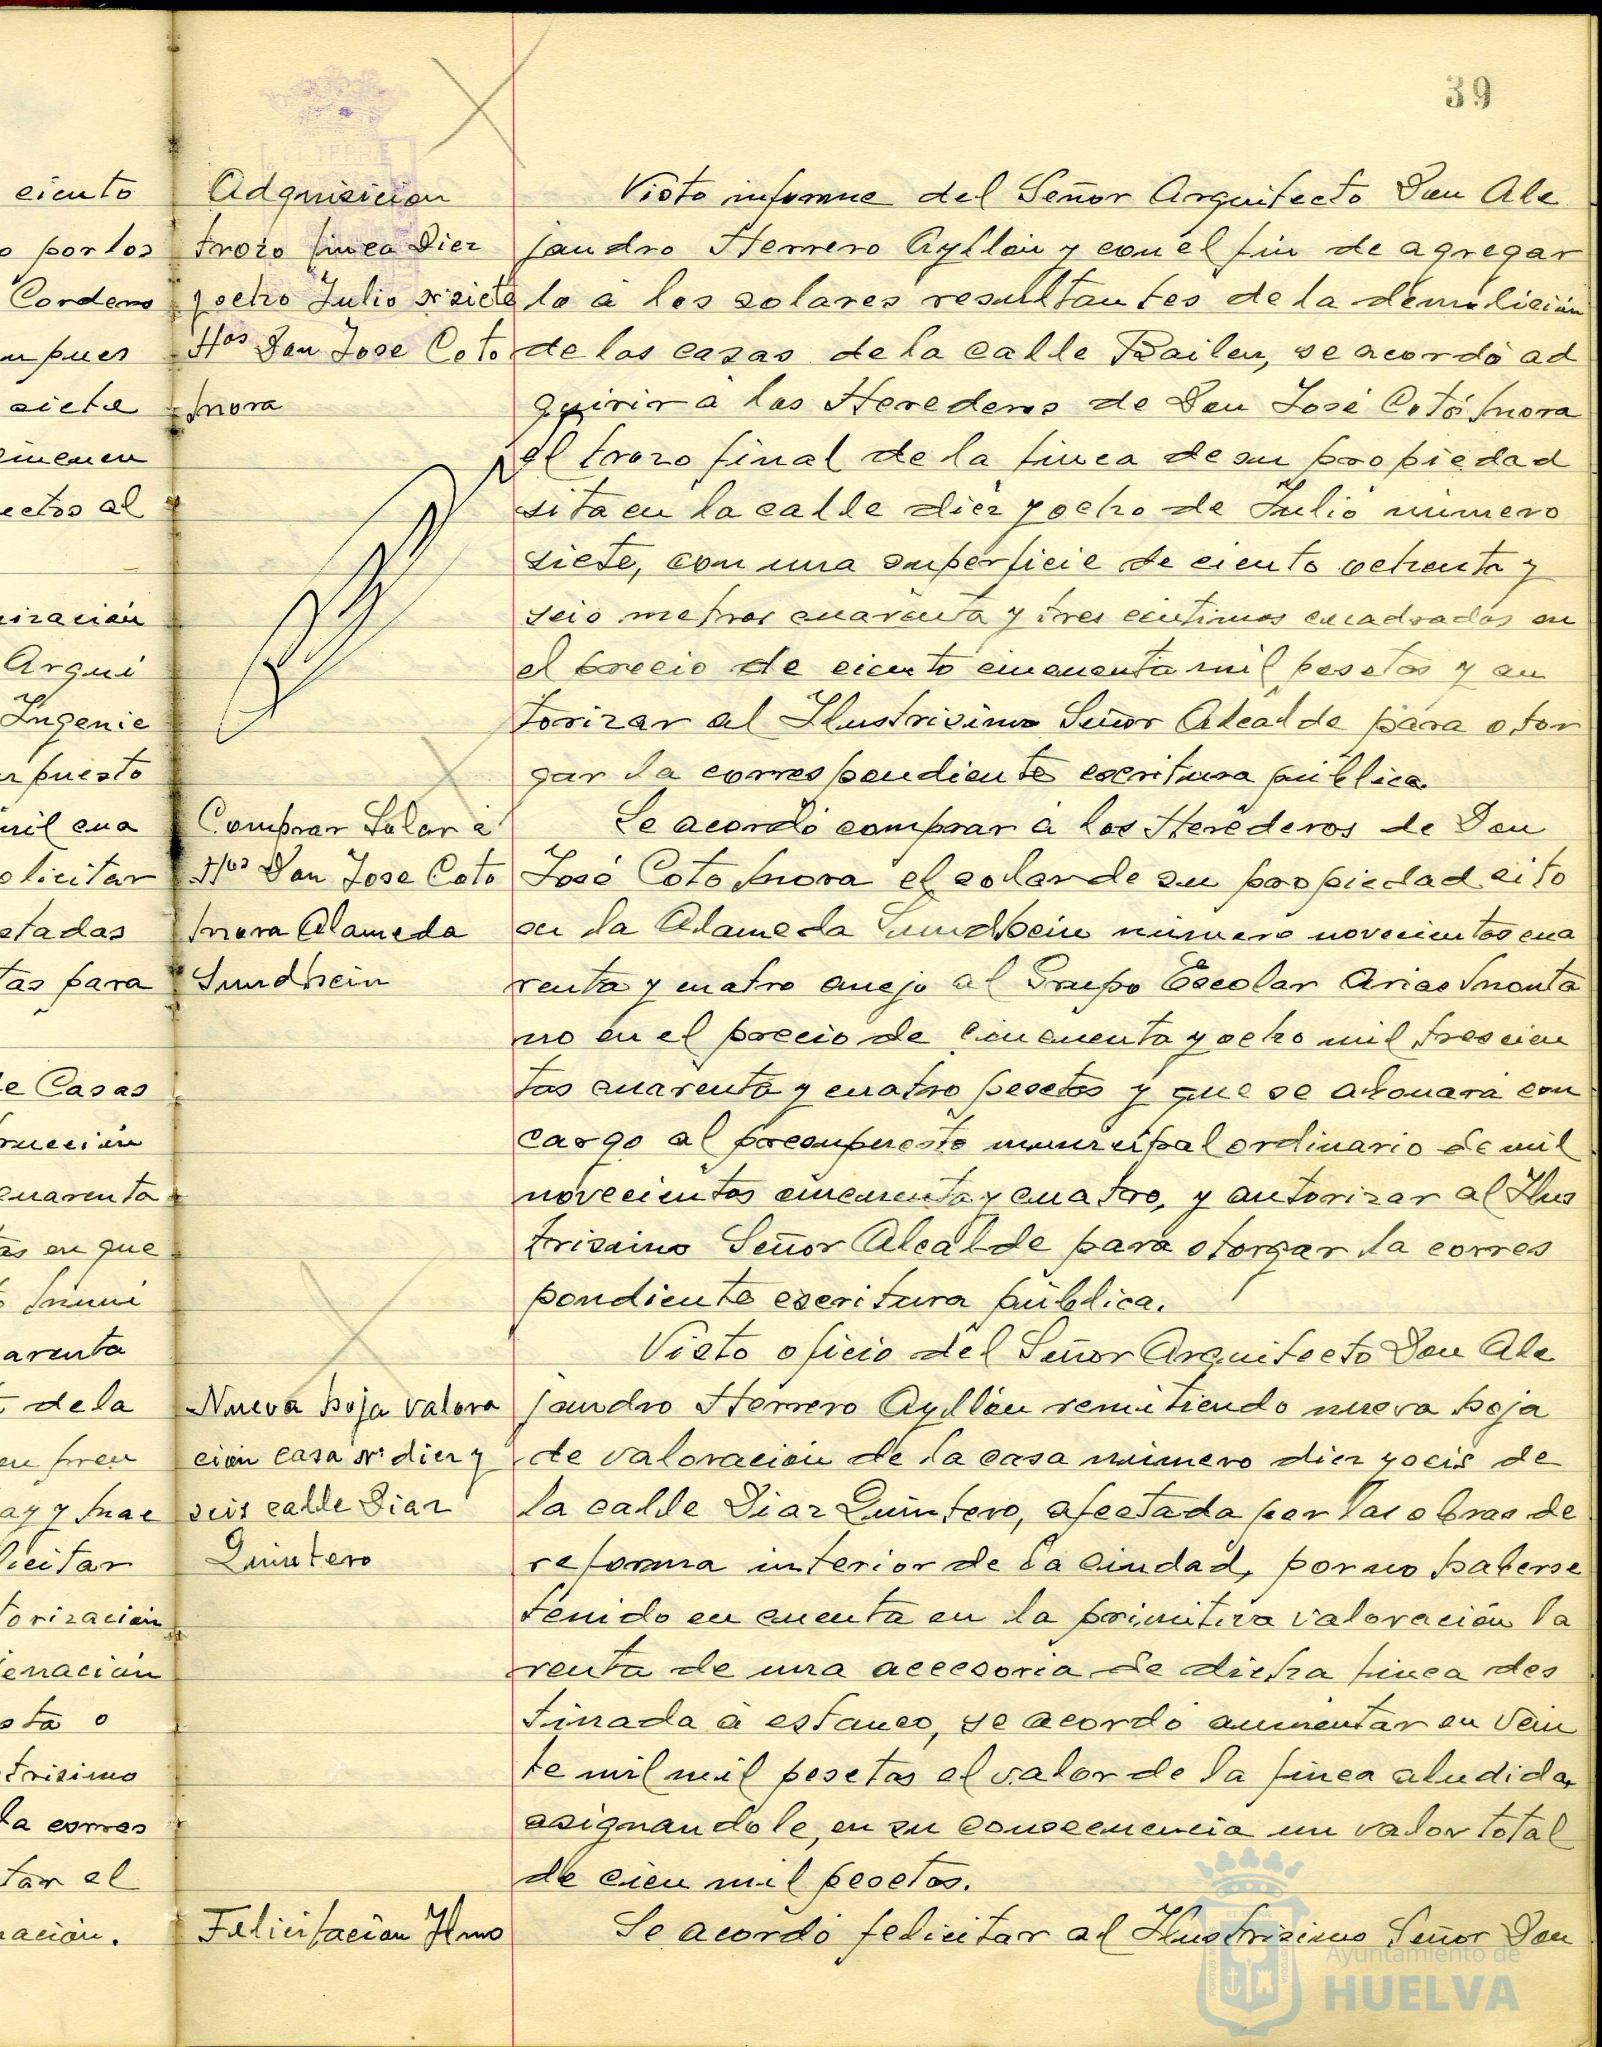 39
ciento
o por los
Cordero
n pues
siete
cincuen
ectos al
nización
Arqui
Ingenie
puesto
mil cua
olicitar
etadas
tas para
de Casas
rucción
cuarenta
tas en que
Muni
arenta
de la
en fren
ay y Mae
licitar
torización
enación
sta o
trisimo
la corres
tar el
nación.
Adquisicion
trozo finca Diez
y ocho Julio nº siete
Hºs Don Jose Coto
Mora
Comprar Solar á
Hºs Don Jose Coto
Mora Alameda
Sundhein
Nueva hoja valora
ción casa nº diez y
seis calle Diaz
Quintero
Felicitacion Ilmo
Visto informe del Señor Arquitecto Don Ale
jandro Herrero Ayllón y con el fin de agregar
lo á los solares resultantes de la demolición
de las casas de la calle Bailen, se acordó ad
quirir á los Herederos de Don José Coto Mora
el trozo final de la finca de su propiedad
sita en la calle diez y ocho de Julio número
siete, con una superficie de ciento ochenta y
seis metros cuarenta y tres centimos cuadrados en
el precio de ciento cincuenta mil pesetas y au
torizar al Ilustrisimo Señor Alcalde para otor
gar la correspondiente escritura pública.
Se acordó comprar á los Herederos de Don
José Coto Mora el solar de su propiedad sito
en la Alameda Sundhein número novecientos cua
renta y cuatro anejo al Grupo Escolar Arias Monta
no en el precio de cincuenta y ocho mil trescien
tas cuarenta y cuatro pesetas y que se abonará con
cargo al presupuesto municipal ordinario de mil
novecientos cincuenta y cuatro, y autorizar al Ilus
trisimo Señor Alcalde para otorgar la corres
pondiente escritura pública.
Visto oficio del Señor Arquitecto Don Ale
jandro Herrero Ayllón remitiendo nueva hoja
de valoración de la casa número diez y seis de
la calle Diaz Quintero, afectada por las obras de
reforma interior de la Ciudad, por no haberse
tenido en cuenta en la primitiva valoración la
renta de una accesoria de dicha finca des
tinada á estanco, se acordó aumentar en vein
te mil mil pesetas el valor de la finca aludida,
asignandole, en su consecuencia un valor total
de cien mil pesetas.
Se acordó felicitar al Ilustrisimo Señor Don
Ayuntamiento de
HUELVA